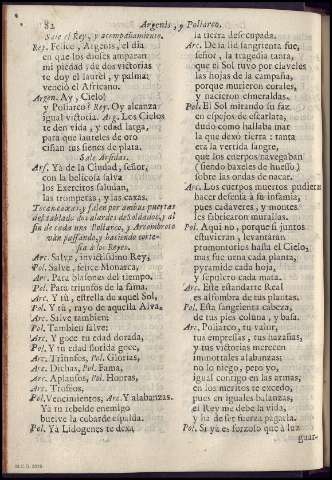 82 Argenis, y Poliarco.
Sale el Rey, y acompañamiento.
Rey. Felice, Argenis, el dia
en que los dioses amparan
mi piedad; de dos victorias
te doy el laurel, y palma;
venciò el Africano.
Argen. Ay, Cielo!
y Poliarco? Rey. Oy alcanza
igual victoria. Arg. Los Cielos
te den vida, y edad larga,
para que laureles de oro
ciñan tus sienes de plata.
Sale Arsidas.
Ars. Yà de la Ciudad, señor,
con la belicosa salva
los Exercitos saludan,
las trompetas, y las caxas.
Tocan caxas, y salen por ambas puertas
del tablado dos alardes de Soldados, y al
fin de cada uno Poliarco, y Arcombroto
vàn passando, y haciendo corte-
sia à los Reyes.
Arc. Salve, invictissimo Rey,
Pol. Salve, felice Monarca,
Arc. Para blasones del tiempo.
Pol. Para triunfos de la fama.
Arc. Y tù, estrella de aquel Sol,
Pol. Y tù, rayo de aquella Alva,
Arc. Salve tambien:
Pol. Tambien salve:
Arc. Y goce tu edad dorada,
Pol. Y tu edad florida goce,
Arc. Triunfos, Pol. Glorias,
Arc. Dichas, Pol. Fama,
Arc. Aplausos, Pol. Honras,
Arc. Trofeos,
Pol. Vencimientos, Arc. Y alabanzas.
Yà tu rebelde enemigo
buelve la cobarde espalda.
Pol. Yà Lidogenes te dexa
la tierra desocupada.
Arc. De la lid sangrienta fue,
señor, la tragedia tanta,
que el Sol tuvo por claveles
las hojas de la campaña,
porque murieron corales,
y nacieron esmeraldas.
Pol. El Sol mirando su faz
en espejos de escarlata,
dudò como hallaba mar
la que dexò tierra: tanta
era la vertida sangre,
que los cuerpos navegaban
(siendo baxeles de huesso)
sobre las ondas de nacar.
Arc. Los cuerpos muertos pudiera
hacer defensa à su infamia,
pues cadaveres, y montes
les fabricaron murallas.
Pol. Aqui no, porque si juntos
estuvieran, levantàran
promontorios hasta el Cielo,
mas fue urna cada planta,
pyramide cada hoja,
y sepulcro cada mata.
Arc. Este estandarte Real
es alfombra de tus plantas.
Pol. Esta sangrienta cabeza,
de tus pies coluna, y basa.
Arc. Poliarco, tu valor,
tus empressas, tus hazañas,
y tus victorias merecen
immortales alabanzas;
no lo niego, pero yo,
igual contigo en las armas;
en los meritos te excedo,
pues en iguales balanzas,
el Rey me debe la vida,
y ha de ser fuerza pagarla.
Pol. Si yà es forzoso que à luz
guar-